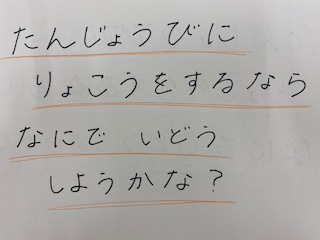 たんじょうびに
りょこうをするなら
なにで いどう
しようかな?